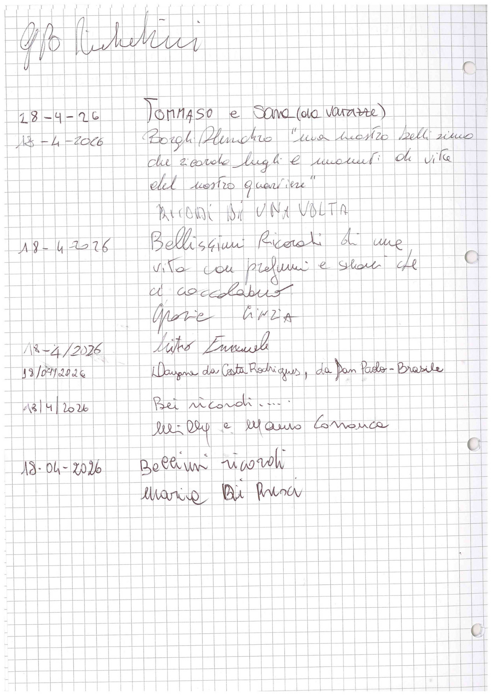 GB
28-4-26 TOMMASO e Sara (da Varazze)
18-4-2026 Borghi "una mostra bellissima
che ricorda luoghi e momenti di vita
del nostro quartiere"
RICORDI DI UNA VOLTA
18-4-2026 Bellissimi Ricordi di una
vita con profumi e suoni che
ci coccolavano
Grazie CINZIA
18-4/2026 Emanuele
18/04/2026 Dayane da Costa Rodrigues, da San Paolo-Brasile
18/4/2026 Bei ricordi.....
Milly e Mauro
18-04-2026 Bellissimi ricordi
Maria Di